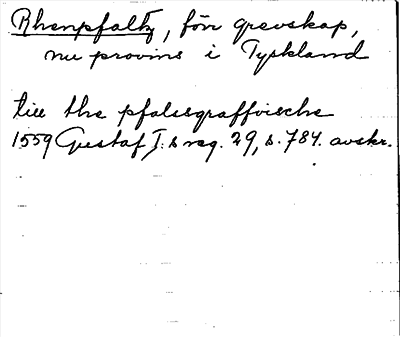 Rhenpfaltz, förr grevskap,
nu provins i Tyskland
till the pfalessgraffvische
1559 Gustaf I:s reg. 29, s. 784. avskr.